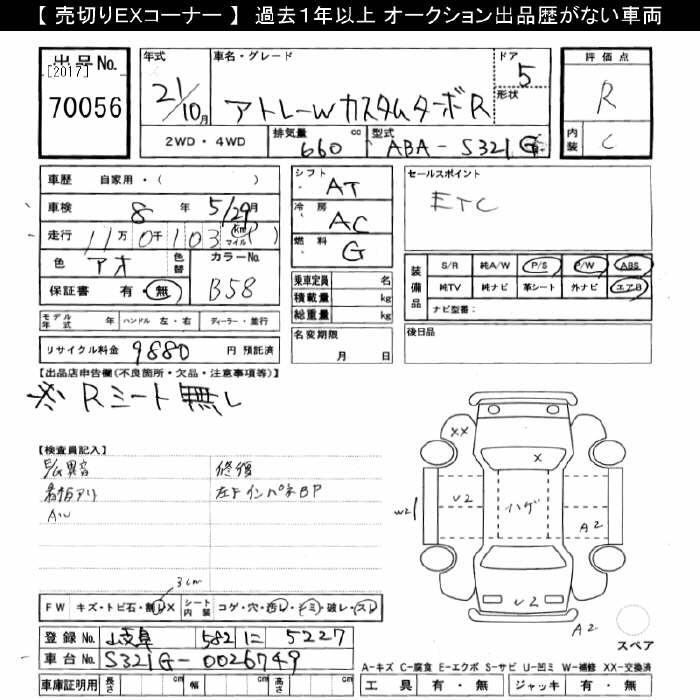 【 売切りEXコーナー 】 過去1年以上 オークション出品歴がない車両
出品No. [2017] 70056
年式 21/10月
車名・グレード アトレーW カスタムターボR
ドア 5 形状
2WD・4WD
排気量 660 cc
型式 ABA-S321G
評価点 R
内装 C
車歴 自家用・( )
車検 8年 5/29月
走行 11万0千103 km マイル
色 アオ 色替 カラーNo. B58
保証書 有・無
モデル年式 年 ハンドル 左・右 ディーラー・並行
リサイクル料金 9880 円 預託済
シフト AT
冷房 AC
燃料 G
乗車定員 名
積載量 kg
総重量 kg
名変期限 月 日
セールスポイント
ETC
装備品
S/R 純A/W P/S P/W ABS
純TV 純ナビ 革シート 外ナビ エアB
ナビ型番:
後日品
【出品店申告欄(不良箇所・欠品・注意事項等)】
※ Rシート無し
【検査員記入】
E/G異音 修復
看板アリ 左F インパネBP
AW
3cm
FW キズ・トビ石・割レX シート内装 コゲ・穴・汚レ・シミ・破レ・スレ
登録No. 岐阜 582 に 5227
車台No. S321G-0026749
車庫証明用 長さ cm 幅 cm 高さ cm
XX
X
W2
U2
ハゲ
A2
U2
A2
スペア
A-キズ C-腐食 E-エクボ S-サビ U-凹ミ W-補修 XX-交換済
工具 有・無 ジャッキ 有・無